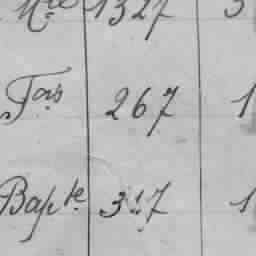 Mce 1327 3
Jas 267 1
Bapte 317 1